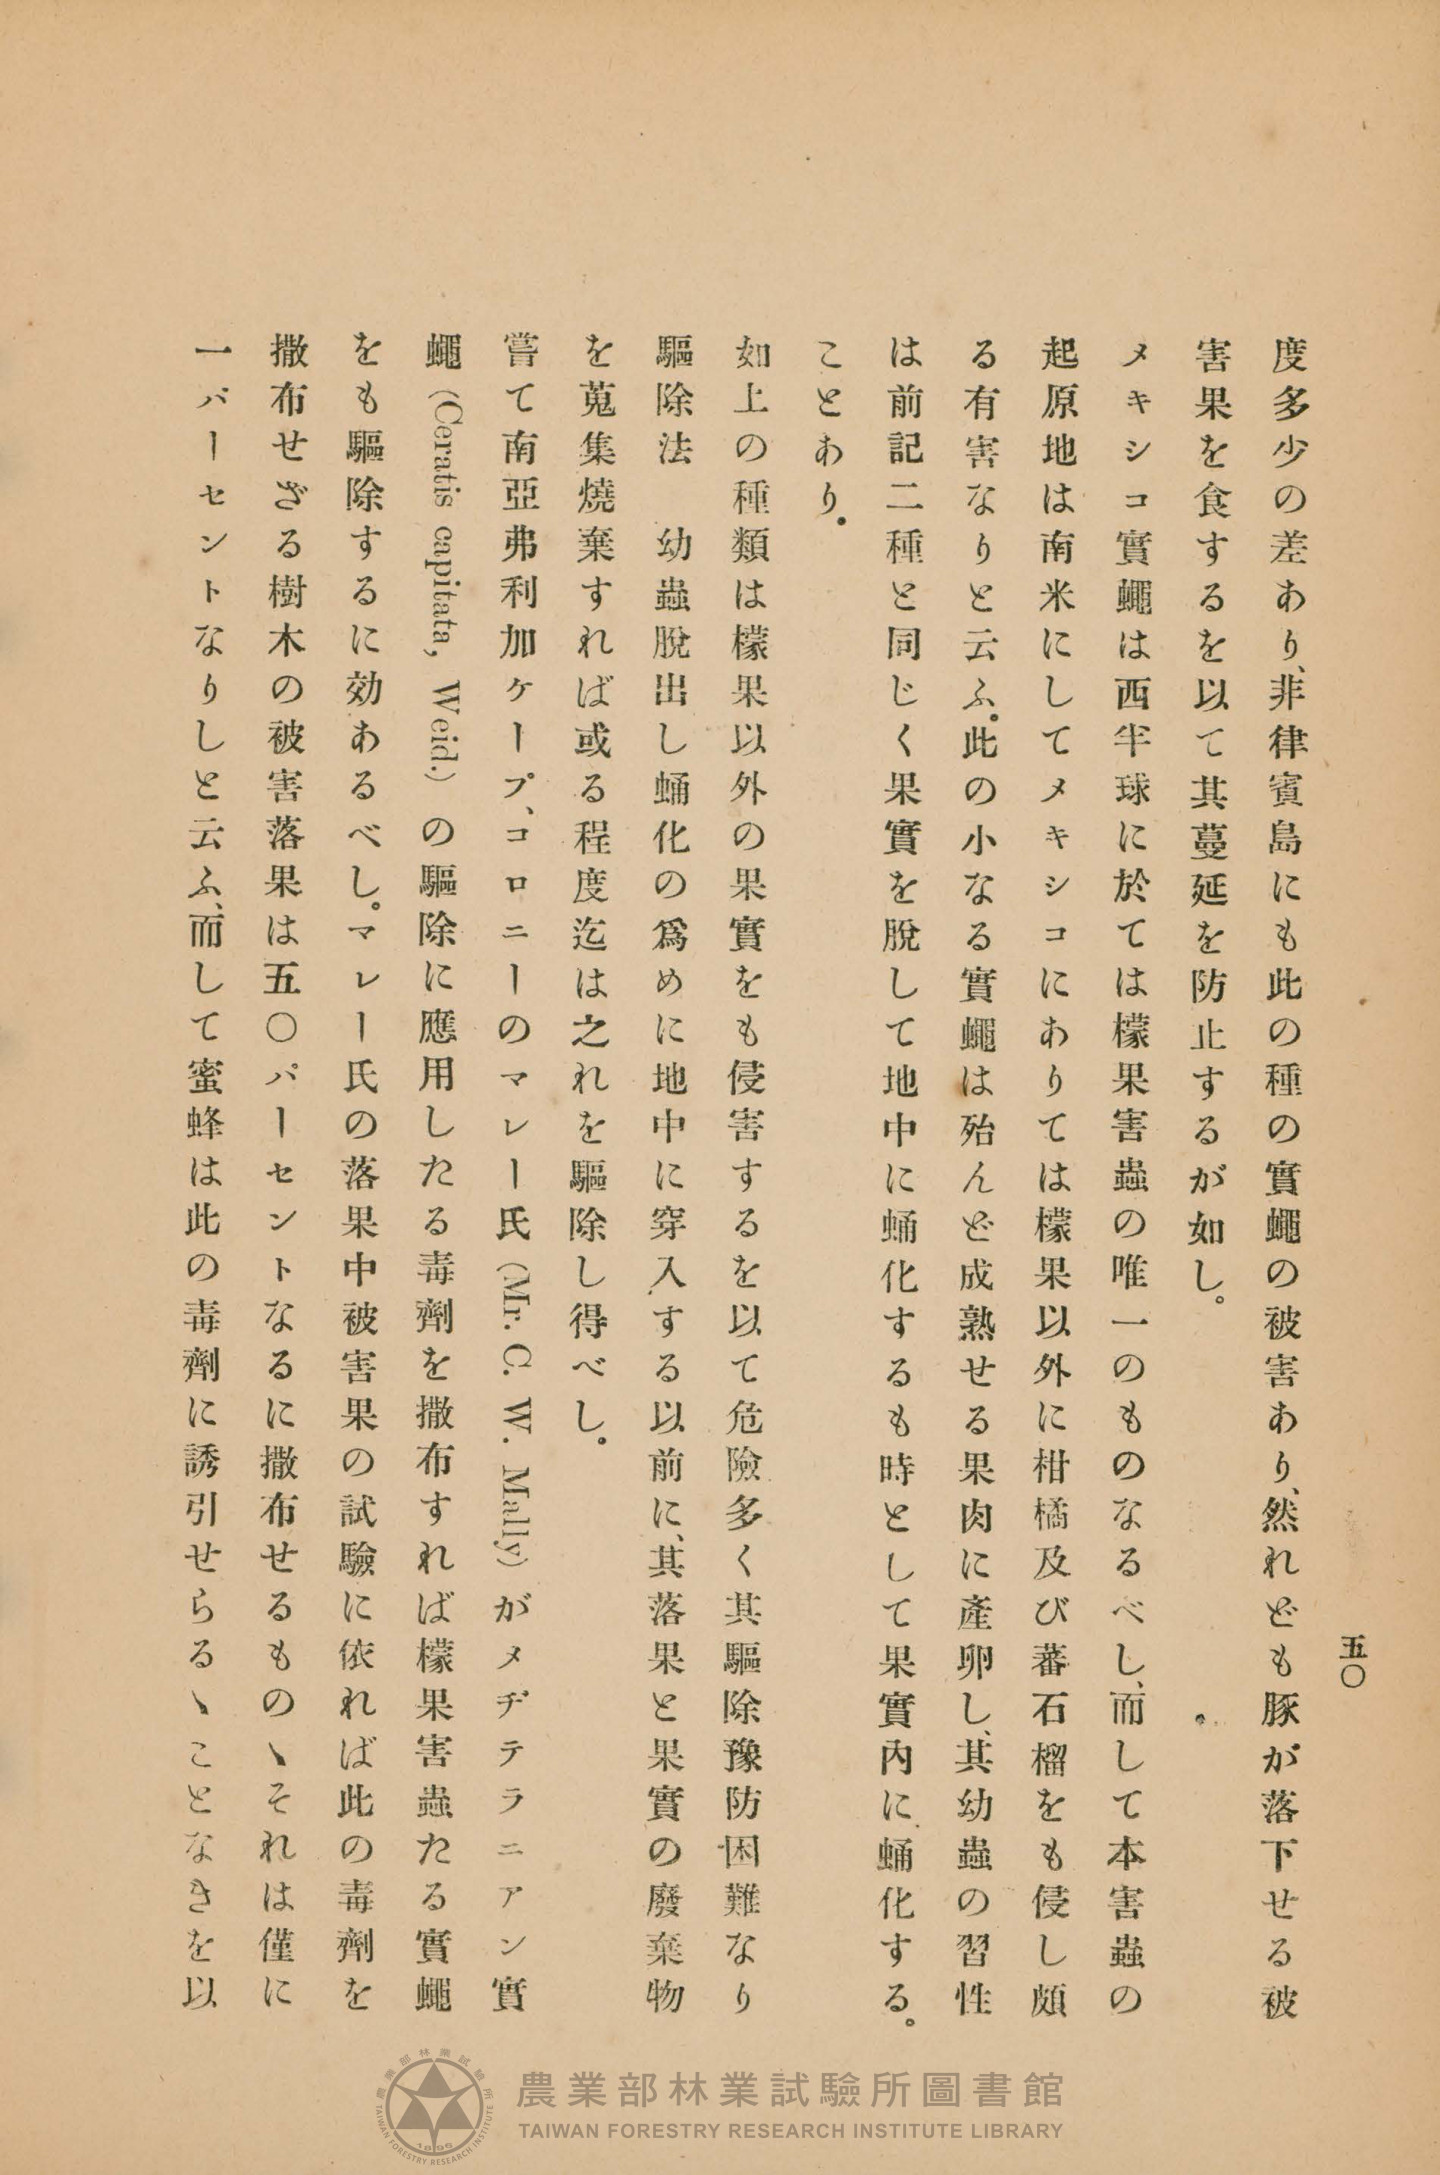 五〇
度多少の差あり、非律賓島にも此の種の實蠅の被害あり、然れども豚が落下せる被
害果を食するを以て其蔓延を防止するが如し。
メキシコ實蠅は西半球に於ては檬果害蟲の唯一のものなるべし、而して本害蟲の
起原地は南米にしてメキシコにありては檬果以外に柑橘及び蕃石榴をも侵し頗
る有害なりと云ふ。此の小なる實蠅は殆んど成熟せる果肉に産卵し、其幼蟲の習性
は前記二種と同じく果實を脫して地中に蛹化するも時として果實內に蛹化する。
ことあり。
如上の種類は檬果以外の果實をも侵害するを以て危險多く其驅除豫防困難なり
驅除法　幼蟲脫出し蛹化の爲めに地中に穿入する以前に、其落果と果實の廢棄物
を蒐集燒棄すれば或る程度迄は之れを驅除し得べし。
嘗て南亞弗利加ケープ、コロニーのマレー氏(Mr. C. W. Mally)がメヂテラニアン實
蠅(Ceratis capitata, Weid.)の驅除に應用したる毒劑を撒布すれば檬果害蟲たる實蠅
をも驅除するに効あるべし。マレー氏の落果中被害果の試驗に依れば此の毒劑を
撒布せざる樹木の被害落果は五〇パーセントなるに撒布せるものゝそれは僅に
一パーセントなりしと云ふ、而して蜜蜂は此の毒劑に誘引せらるゝことなきを以
農業部林業試驗所圖書館
TAIWAN FORESTRY RESEARCH INSTITUTE LIBRARY
農業部林業試驗所
TAIWAN FORESTRY RESEARCH INSTITUTE
1896